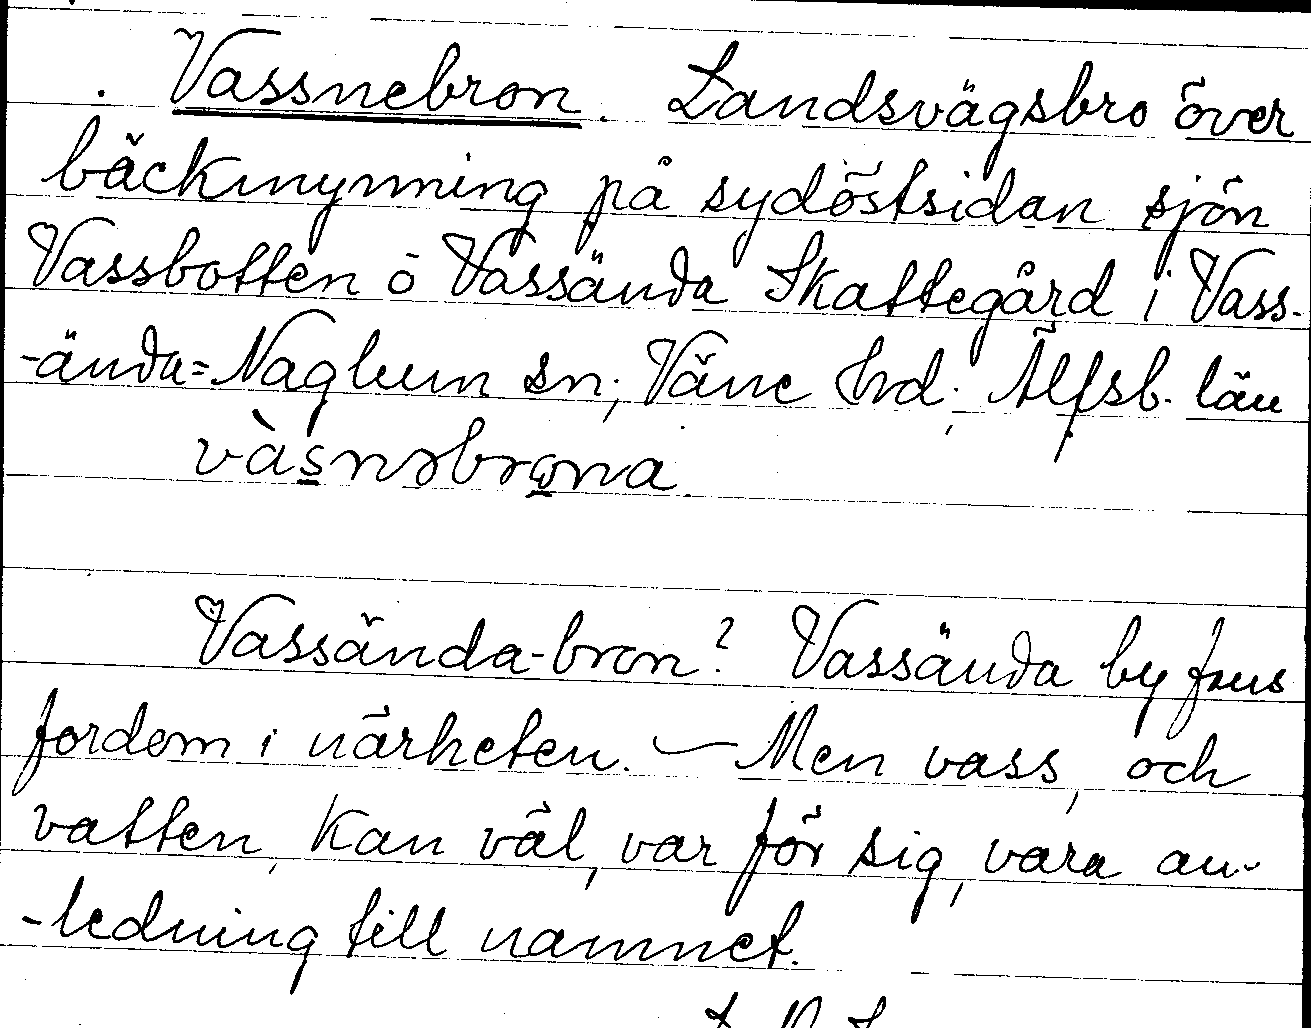 Vassnebron. Landsvägsbro över
bäckmynning på sydöstsidan sjön
Vassbotten ö Vassända Skattegård i Vass-
-ända=Naglum sn, Väne hd, Älfsb. län
vàsnəbrona
Vassända-bron? Vassända by fans
fordom i närheten. — Men vass, och
vatten, kan väl, var för sig, vara an-
-ledning till namnet.